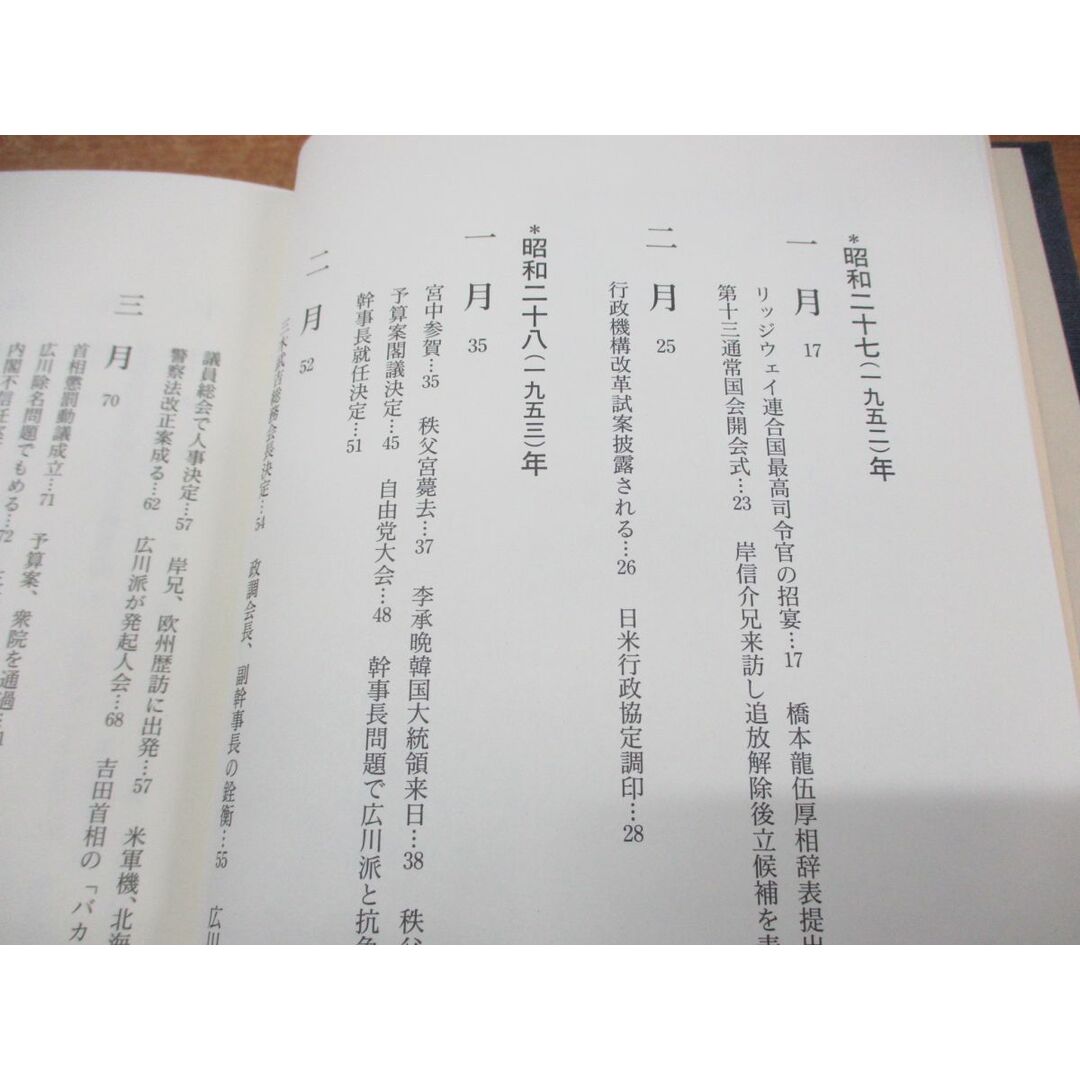 ＊昭和二十七(一九五二)年
一月 17
リッジウェイ連合国最高司令官の招宴…17 橋本龍伍厚相辞表提出
第十三通常国会開会式…23 岸信介兄来訪し追放解除後立候補を
二月 25
行政機構改革試案披露される…26 日米行政協定調印…28
＊昭和二十八(一九五三)年
一月 35
宮中参賀…35 秩父宮薨去…37 李承晩韓国大統領来日…38 秩父
予算案閣議決定…45 自由党大会…48 幹事長問題で広川派と抗争
幹事長就任決定…51
二月 52
三木武吉総務会長決定…54 政調会長、副幹事長の銓衡…55 広川
議員総会で人事決定…57 岸兄、欧州歴訪に出発…57 米軍機、北海
警察法改正案成る…62 広川派が発起人会…68 吉田首相の「バカ
三月 70
首相懲罰動議成立…71 予算案、衆院を通過…
広川除名問題でもめる…72
内閣不信任